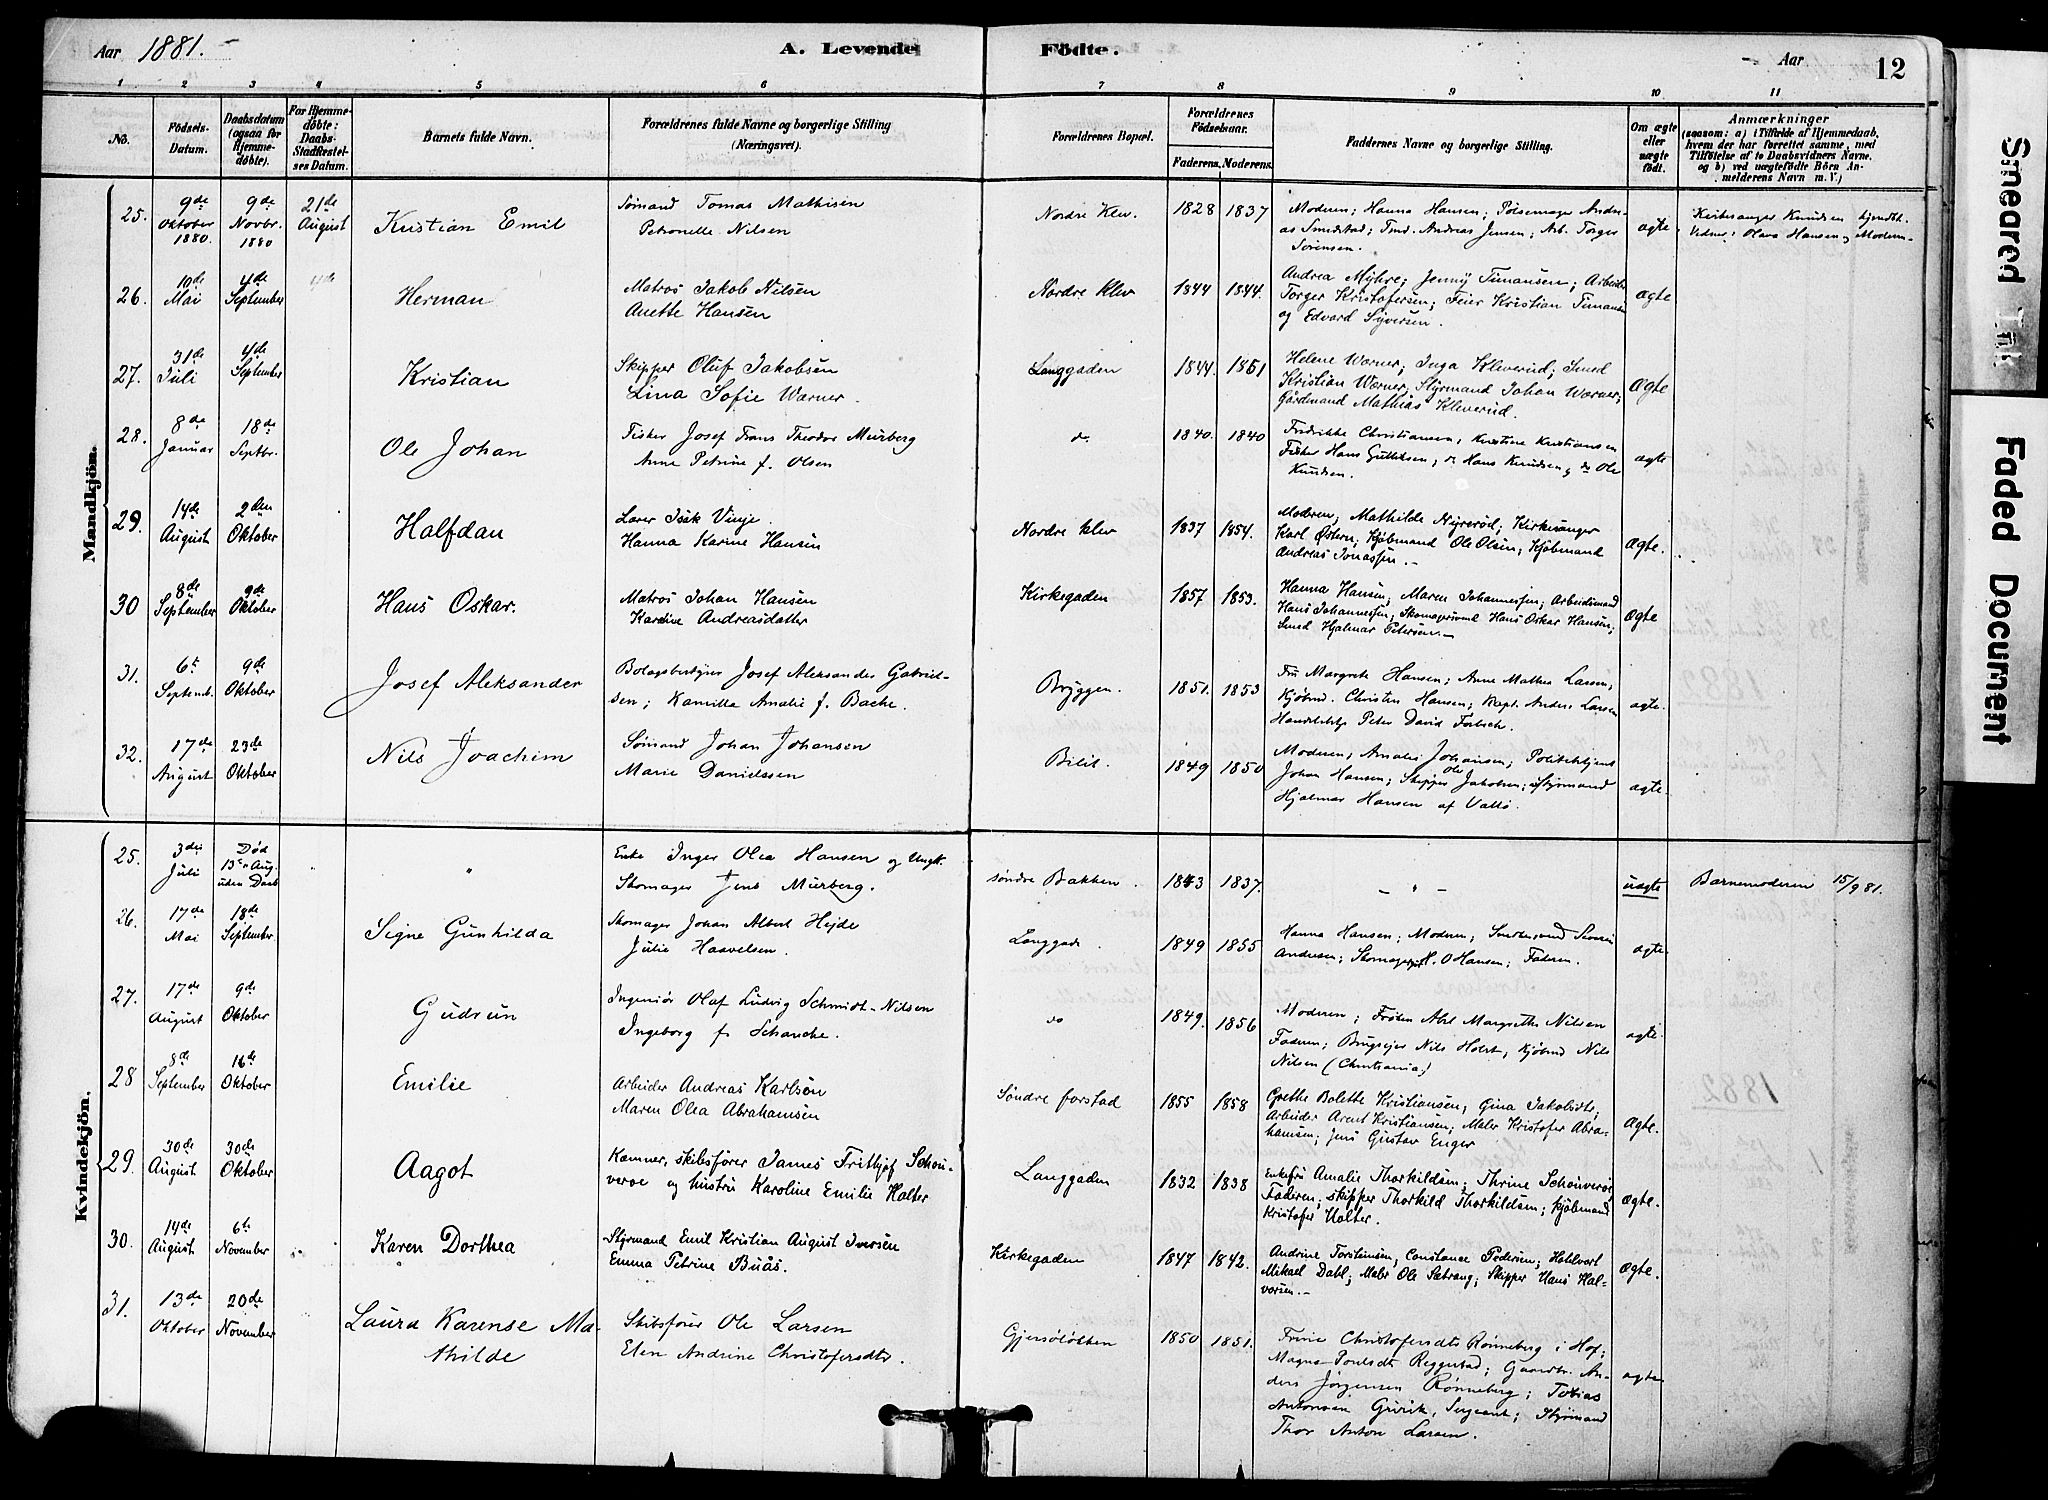 Aar 1881. A. Levende Födte. Aar 12
1 2 3 4 5 6 7 8 9 10 11
No. Födsels-Datum. Daabsdatum (ogsaa for Hjemmedöbte). For Hjemmedöbte: Daabs-Stadfæstelses Datum. Barnets fulde Navn. Forældrenes fulde Navne og borgerlige Stilling (Næringsvei). Forældrenes Bopæl. Forældrenes Födselsaar. Faderens. Moderens. Faddernes Navne og borgerlige Stilling. Om ægte eller uægte födt. Anmærkninger (saasom: a) i Tilfælde af Hjemmedaab, hvem der har forrettet samme, med Tilföielse af to Daabsvidners Navne, og b) ved uægtefödte Börn Anmelderens Navn m. V.)
Mandkjön.
25. 9de Oktober 1880. 9de Novbr. 1880 21de August Kristian Emil
Sømand Tomas Mathisen
Petronelle Nilsen
Nordre Klev 1828 1837
Moderen; Hanna Hansen; Pølsemager Andre-
as Smedstad; Tmd. Andreas Jensen; Arb. Torger
Sørensen.
ægte
Kirkesanger Knudsen hjemdbt.
Vidner: Olava Hansen og Moderen
26. 10de Mai 4de September 4de Herman
Matros Jakob Nilsen
Anette Hansen
Nordre klev 1844 1844.
Andrea Myhre; Jenny Timansen; Arbeider
Torger Kristofersen; Feier Kristian Timansen
og Edvard Syversen.
Ægte
27. 31de Juli 4de September Kristian
Skipper Oluf Jakobsen
Lina Sofie Wærner.
Langgaden 1844. 1851
Helene Wærner; Inga Kleverud; Smed
Kristian Wærner; Styrmand Johan Wærner;
Gårdmand Mathias Kleverud.
Ægte
28. 8de Januar 18de Septbr. Ole Johan
Fisker Josef Frans Theodor Murberg
Anne Petrine f. Olsen
do 1840. 1840
Fredrikke Christiansen, Kristine Kristiansen
Fisker Hans Gulliksen, do Hans Knudsen, do Ole
Knudsen.
ægte
29. 14de August 2den Oktober Halfdan
Lærer Isak Vinje.
Hanna Karine Hansen
Nordre klev 1837 1854.
Moderen; Mathilde Nyrerød; Kirkesanger
Karl Østern; Kjøbmand Ole Olsen; Kjøbmand
Andreas Jonassen.-
Ægte.
30 8de September 9de Oktober Hans Oskar.
Matros Johan Hansen
Karoline Andreasdatter
Kirkegaden 1857 1853.
Hanna Hansen; Maren Johannessen; Arbeidsmand
Hans Johannessen; Skomagersvend Hans Oskar Hansen;
Smed Hjalmar Petersen.-
Ægte
31. 6t Septemb. 9de Oktober Josef Aleksander
Bolagsbestyrer Josef Aleksander Gabriel-
sen; Kamilla Amalie f. Bache.
Bryggen. 1851. 1853
Fru Margrete Hansen; Anne Mathea Larsen;
Kjøbmd. Christen Hansen; Kapt. Anders Larsen
Handelsbtj. Peter David
ægte.
32. 17de August 23de Oktober Nils Joachim
Sømand Johan Johansen
Marie Danielssen
Bilit. 1849 1850
Moderen; Amalie Johansen; Politibetjent
Johan Hansen; Skipper Ole Jakobsen; Styrmand
Hjalmar Hansen af Vallø.
ægte.
Kvindekjön.
25. 3die Juli Død 13de Aug. uden Daab "
Enke Inger Olea Hansen og Ungk.
Skomager Jens Murberg.
søndre Bakken. 1843 1837. - " - uægte Barnemoderen 15/9 81.
26. 17de Mai 18de September Signe Gunhilda
Skomager Johan Albert Hejde
Julie Haavelsen.
Langgad. 1849 1855
Hanna Hansen; Moderen; Severin
Andersen; Skomager H. O Hansen; Faderen.
ægte.
27. 17de August 9de Oktober Gudrun
Ingeniør Olaf Ludvig Schmidt-Nilsen
Ingeborg f. Schanche.
do 1849. 1856
Moderen; Frøken Abel Margrethe Nilsen
Faderen; Brugsejer Nils Holst, Kjøbmd Nils
Nilsen (Christiania)
ægte.
28 8de September 16de Oktober Emilie
Arbeider Andreas Karlsen
Maren Olea Abrahamsen
Søndre forstad 1855 1858
Grethe Bolette Kristiansen, Gina Jakobsdtr;
Arbeider Arent Kristiansen; Maler Kristofer Abra-
hamsen; Jens Gustav Enger
Ægte.
29. 30de August 30de Oktober Aagot
Kæmner, skibsfører James Frithjof Schou-
verøe og hustru Karoline Emilie Halter
Langgaden 1832 1838
Enkefru Amalie Thorkildsen; Thrine Schouverøe
Faderen; skipper Thorkild Thorkildsen; kjøbmand
Kristofer Halter.
Ægte.
30. 14de August 6te November Karen Dorthea
Styrmand Emil Kristian August Iversen
Emma Petrine Buås.
Kirkegaden 1847 1842.
Andrine Torstensen; Constance Pedersen; Hatelvort
Mikael Dahl; Maler Ole Sætrang; Skipper Hans Hal-
vorsen.-
Ægte.
31. 13de Oktober 20de November Laura Karense Ma-
thilde
Skibsfører Ole Larsen
Elen Andrine Christofersdtr.
Gjersøløkken 1850 1851.
Trine Christofersdtr Rønneberg i Hof;
Magna Poulsdt Reggestad; Gaardbr. An-
ders Jørgensen Rønneberg; Tobias
Antonsen Grivik, Sergeant; Styrmand
Thor Anton Larsen.
ægte
1882
Smeared Ink
Faded Document